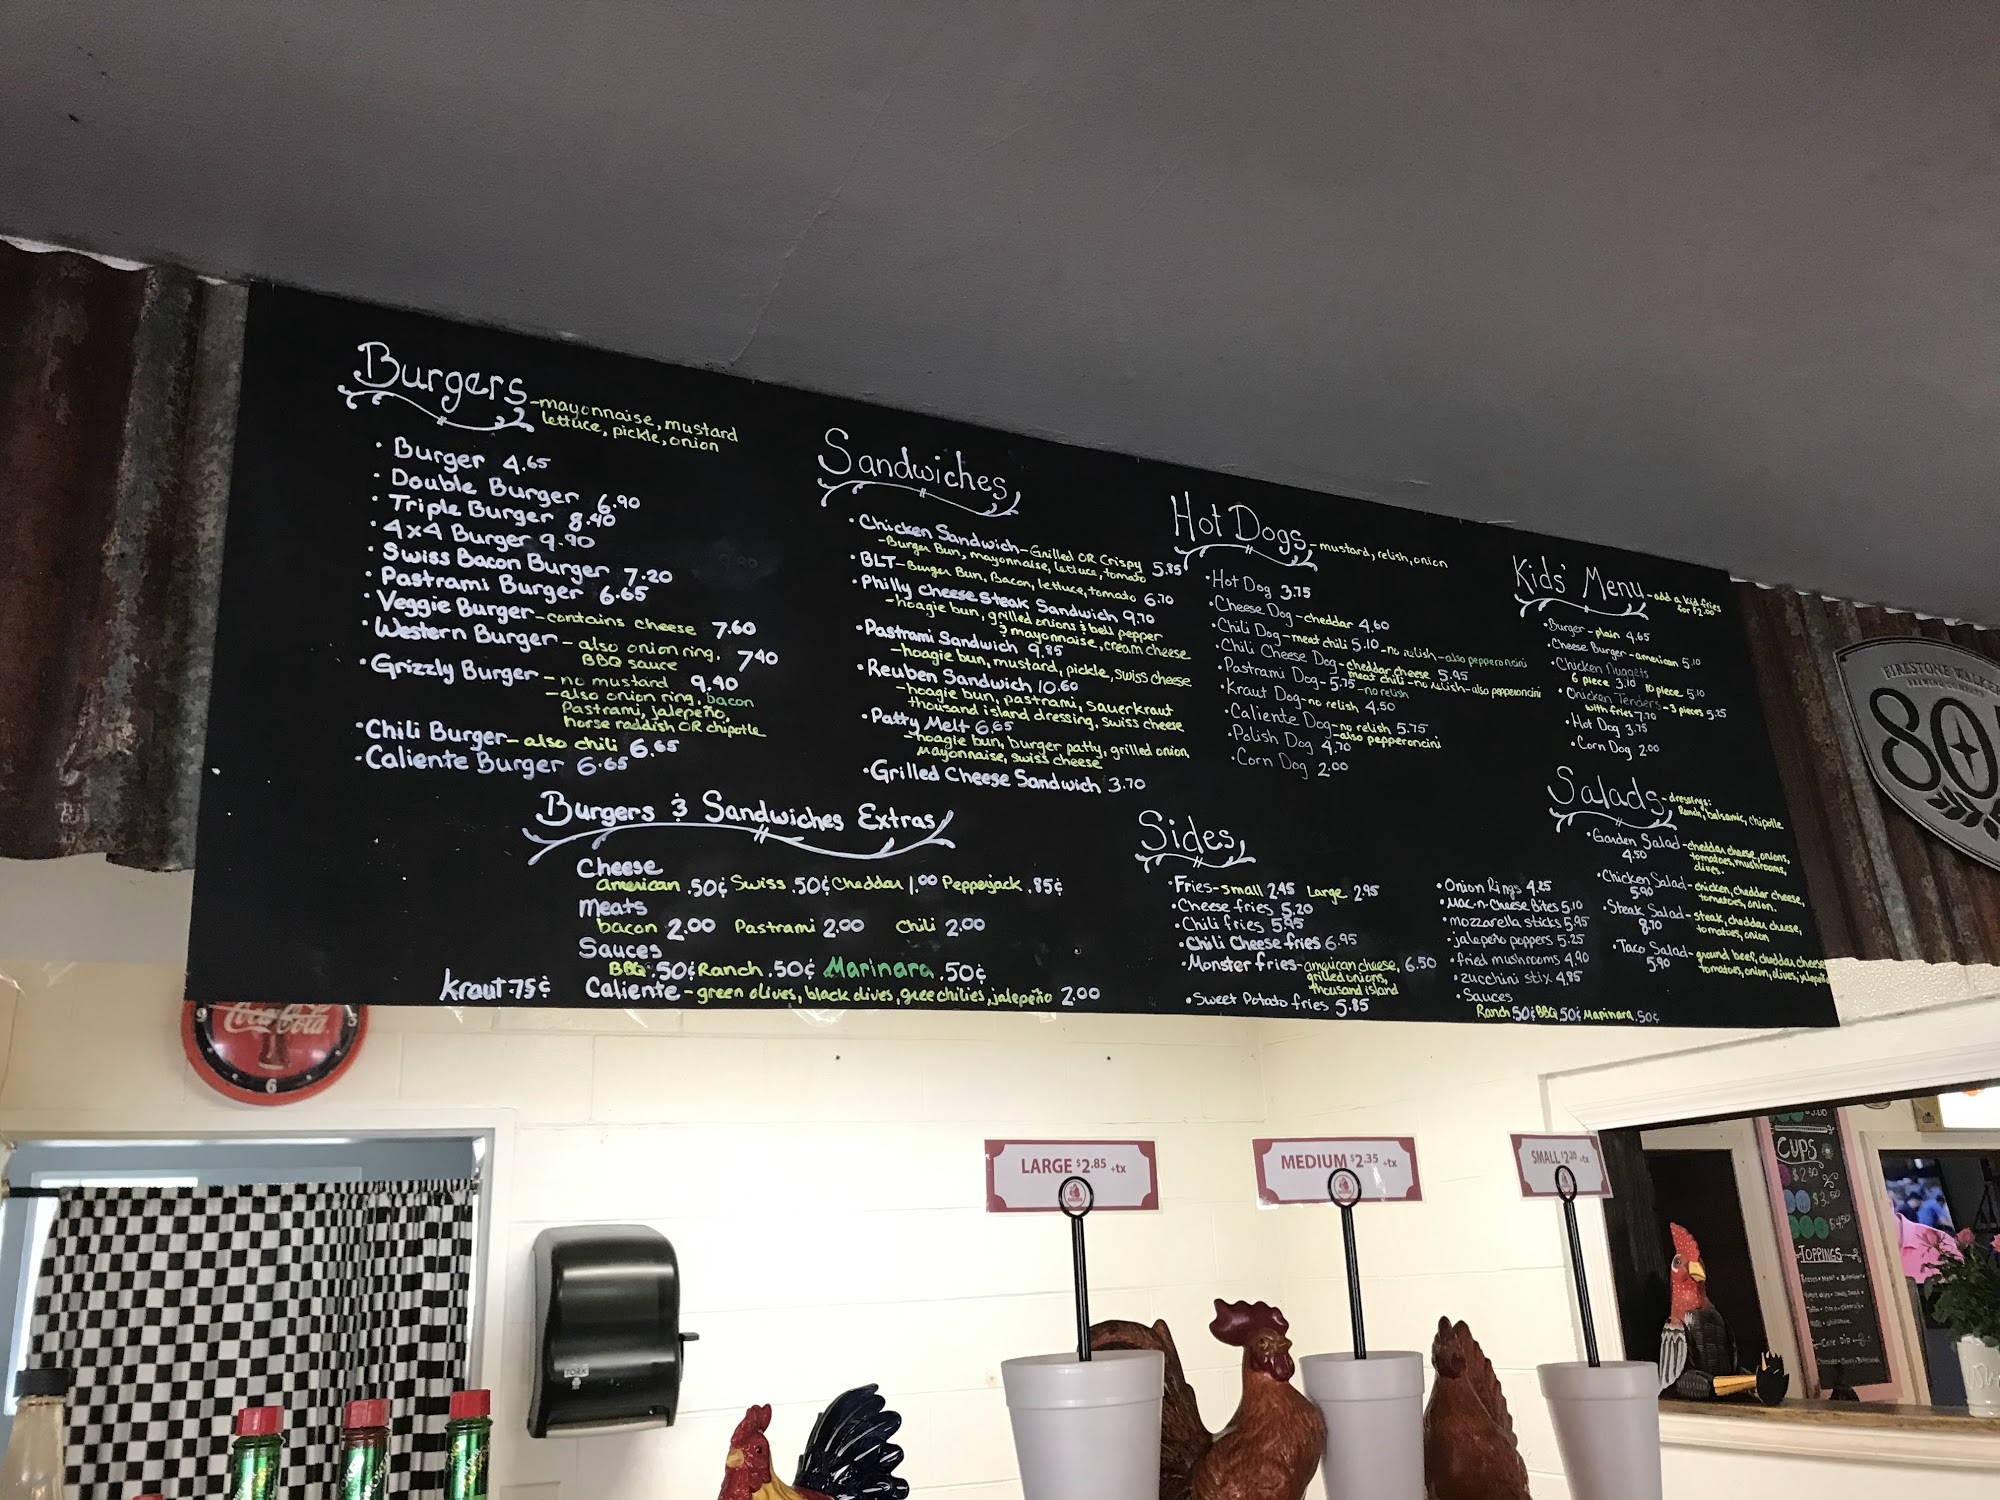 Burgers - mayonnaise, mustard
lettuce, pickle, onion
• Burger 4.65
• Double Burger 6.90
• Triple Burger 8.40
• 4x4 Burger 9.90
• Swiss Bacon Burger 7.20
• Pastrami Burger 6.65
• Veggie Burger - contains cheese 7.60
• Western Burger - also onion ring, 7.40
BBQ sauce
• Grizzly Burger - no mustard 9.40
- also onion ring, bacon
Pastrami, jalepeño,
horse raddish OR chipotle
• Chili Burger - also chili 6.65
• Caliente Burger 6.65
Sandwiches
• Chicken Sandwich - Grilled OR Crispy 5.85
- Burger Bun, mayonnaise, lettuce, tomato
• BLT - Burger Bun, Bacon, lettuce, tomato 6.70
• Philly cheese steak Sandwich 9.70
- hoagie bun, grilled onions & bell pepper
& mayonnaise, cream cheese
• Pastrami Sandwich 9.85
- hoagie bun, mustard, pickle, swiss cheese
• Reuben Sandwich 10.60
- hoagie bun, pastrami, sauerkraut
thousand island dressing, swiss cheese
• Patty Melt 6.65
- hoagie bun, burger patty, grilled onion,
mayonnaise, swiss cheese
• Grilled Cheese Sandwich 3.70
Hot Dogs - mustard, relish, onion
• Hot Dog 3.75
• Cheese Dog - cheddar 4.60
• Chili Dog - meat chili 5.10 - no relish - also pepperoncini
• Chili Cheese Dog - cheddar cheese 5.95
meat chili - no relish - also pepperoncini
• Pastrami Dog - 5.75 - no relish
• Kraut Dog - no relish 4.50
• Caliente Dog - no relish 5.75
- also pepperoncini
• Polish Dog 4.70
• Corn Dog 2.00
Kids' Menu - add a kid fries
for $2.00
• Burger - plain 4.65
• Cheese Burger - american 5.10
• Chicken Nuggets
6 piece 3.10 10 piece 5.10
• Chicken Tenders - 3 pieces 5.25
with fries 7.70
• Hot Dog 3.75
• Corn Dog 2.00
Salads - dressings:
Ranch, balsamic, chipotle
• Garden Salad - cheddar cheese, onions,
4.50 tomatoes, mushrooms,
olives.
• Chicken Salad - chicken, cheddar cheese,
5.90 tomatoes, onion.
• Steak Salad - steak, cheddar cheese,
8.70 tomatoes, onion
• Taco Salad - ground beef, cheddar cheese
5.90 tomatoes, onion, olives, jalepeño
Burgers & Sandwiches Extras
Cheese
american .50¢ Swiss .50¢ Cheddar 1.00 Pepperjack .85¢
Meats
bacon 2.00 Pastrami 2.00 Chili 2.00
Sauces
BBQ .50¢ Ranch .50¢ Marinara .50¢
kraut .75¢ Caliente - green olives, black olives, green chilies, jalepeño 2.00
Sides
• Fries - small 2.45 Large 2.95
• Cheese fries 5.20
• Chili fries 5.95
• Chili Cheese fries 6.95
• Monster fries - american cheese, 6.50
grilled onions,
thousand island
• Sweet Potato fries 5.85
• Onion Rings 4.25
• Mac-n-Cheese Bites 5.10
• mozzarella sticks 5.95
• jalepeño poppers 5.25
• fried mushrooms 4.90
• zucchini stix 4.85
• Sauces
Ranch .50¢ BBQ .50¢ Marinara .50¢
FIRESTONE WALKER
BREWING COMPANY
805
9 3
Coca-Cola
6
LARGE $2.85 +tx
MEDIUM $2.35 +tx
SMALL $2.20 +tx
CUPS
$2.50
$3.50
$4.50
TOPPINGS
TORK